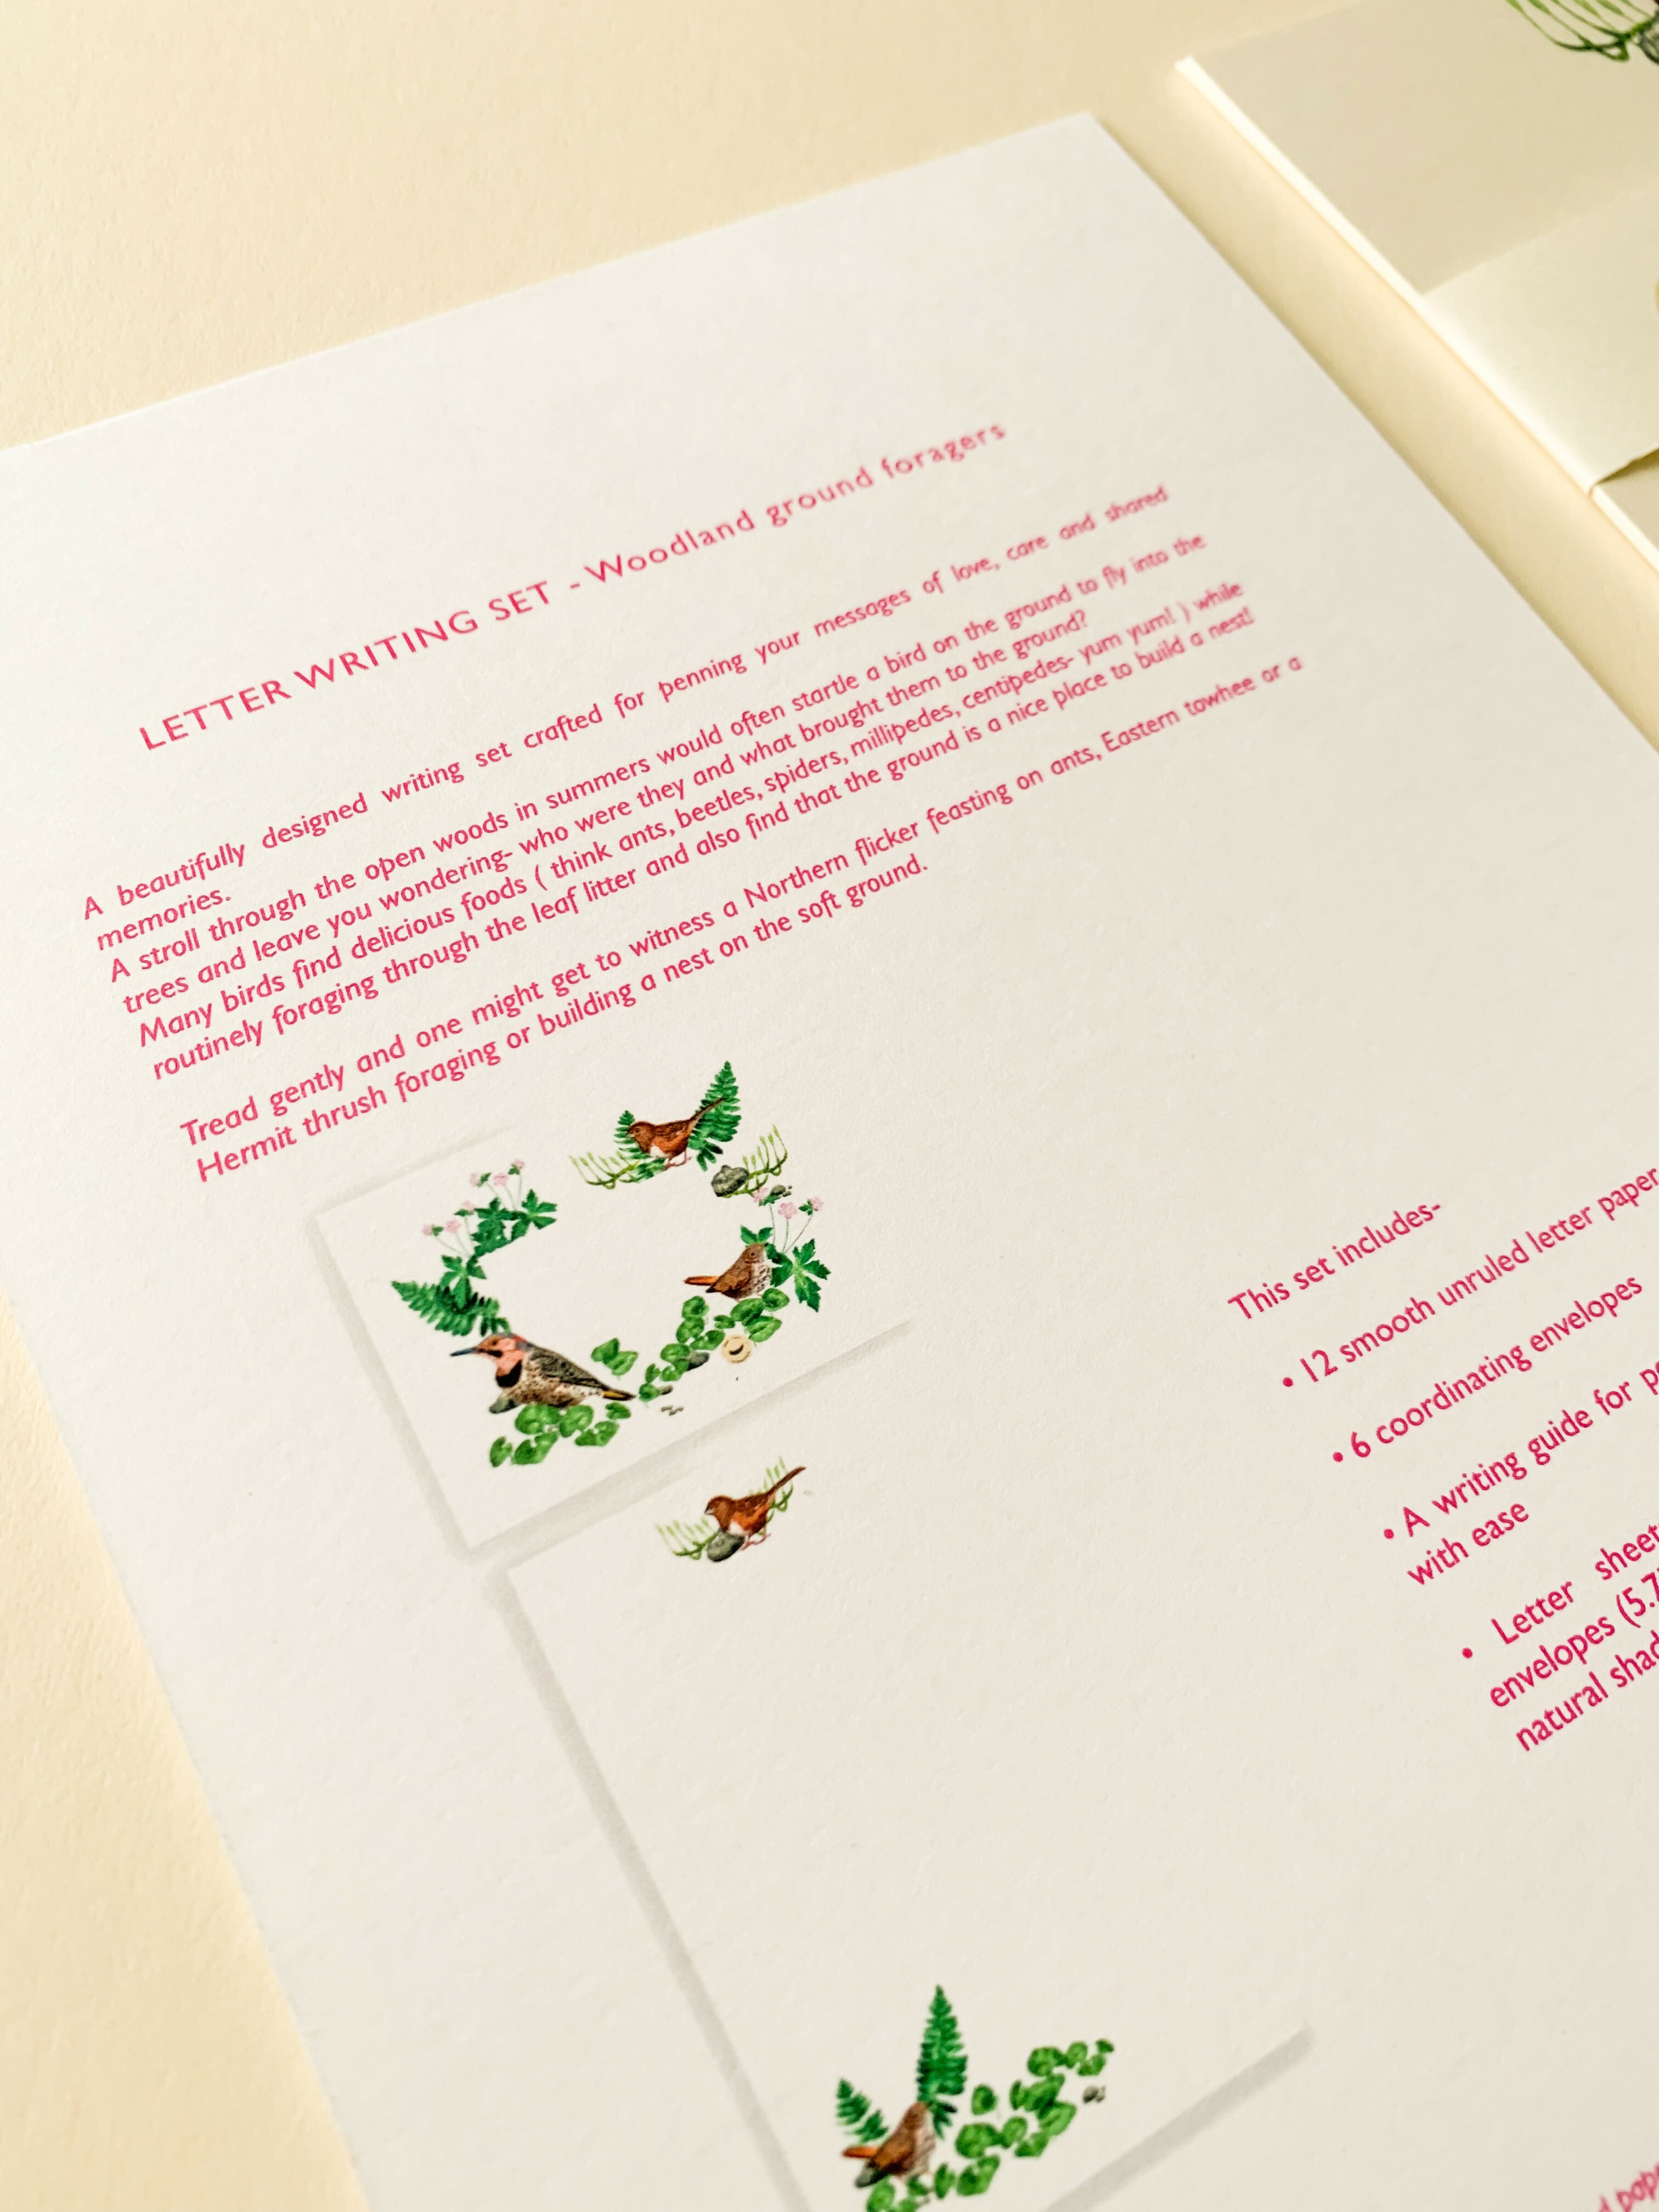 LETTER WRITING SET - Woodland ground foragers
A beautifully designed writing set crafted for penning your messages of love, care and shared
memories.
A stroll through the open woods in summers would often startle a bird on the ground to fly into the
trees and leave you wondering- who were they and what brought them to the ground?
Many birds find delicious foods ( think ants, beetles, spiders, millipedes, centipedes- yum yum! ) while
routinely foraging through the leaf litter and also find that the ground is a nice place to build a nest!
Tread gently and one might get to witness a Northern flicker feasting on ants, Eastern towhee or a
Hermit thrush foraging or building a nest on the soft ground.
This set includes-
• 12 smooth unruled letter paper
• 6 coordinating envelopes
• A writing guide for
with ease
• Letter
envelopes (5.7
natural